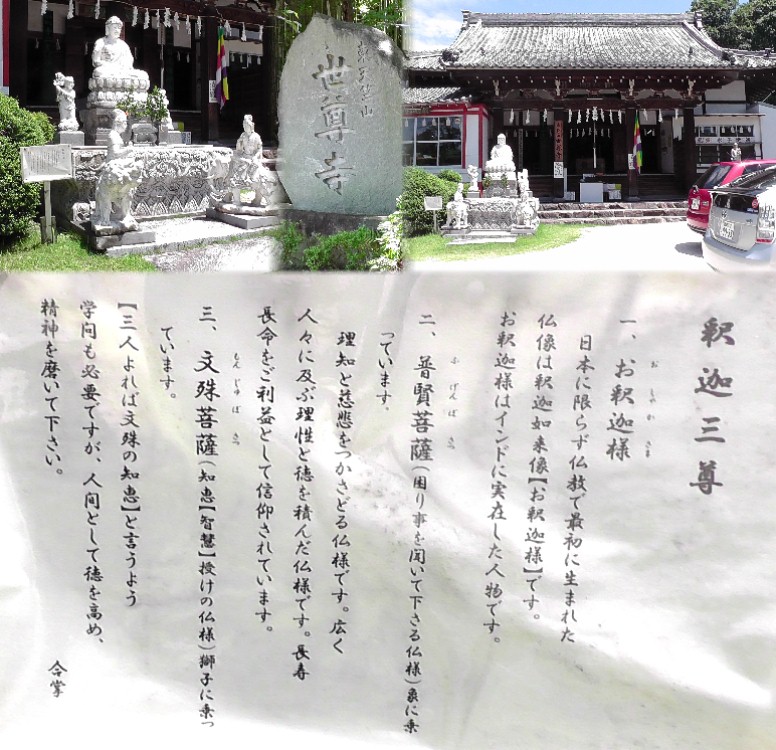 世尊寺
釈迦三尊
一、お釈迦様
おしゃかさま
日本に限らず仏教で最初に生まれた
仏像は釈迦如来像【お釈迦様】です。
お釈迦様はインドに実在した人物です。
二、普賢菩薩(困り事を聞いて下さる仏様)象に乗
ふげんぼさつ
っています。
理知と慈悲をつかさどる仏様です。広く
人々に及ぶ理性と徳を積んだ仏様です。長寿
長命をご利益として信仰されています。
三、文殊菩薩(知恵【智慧】授けの仏様)獅子に乗っ
もんじゅぼさつ
ています。
【三人よれば文殊の知恵】と言うよう
学問も必要ですが、人間として徳を高め、
精神を磨いて下さい。
合掌